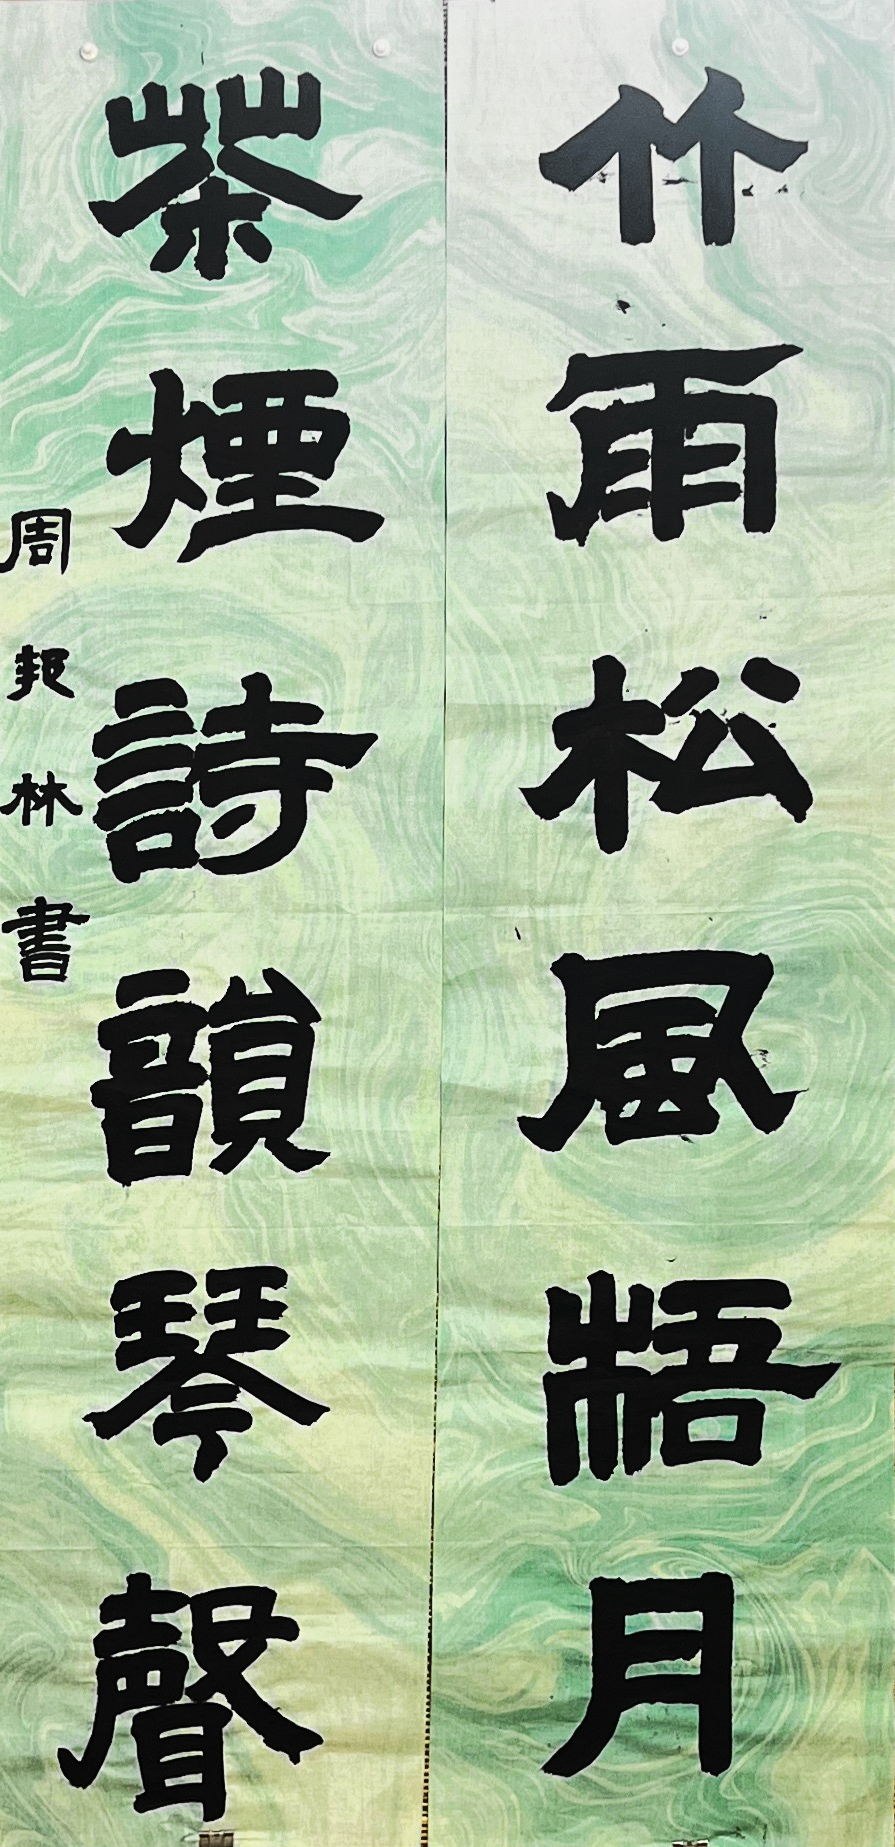 竹雨松風梧月
茶煙詩韻琴聲
周邦林書